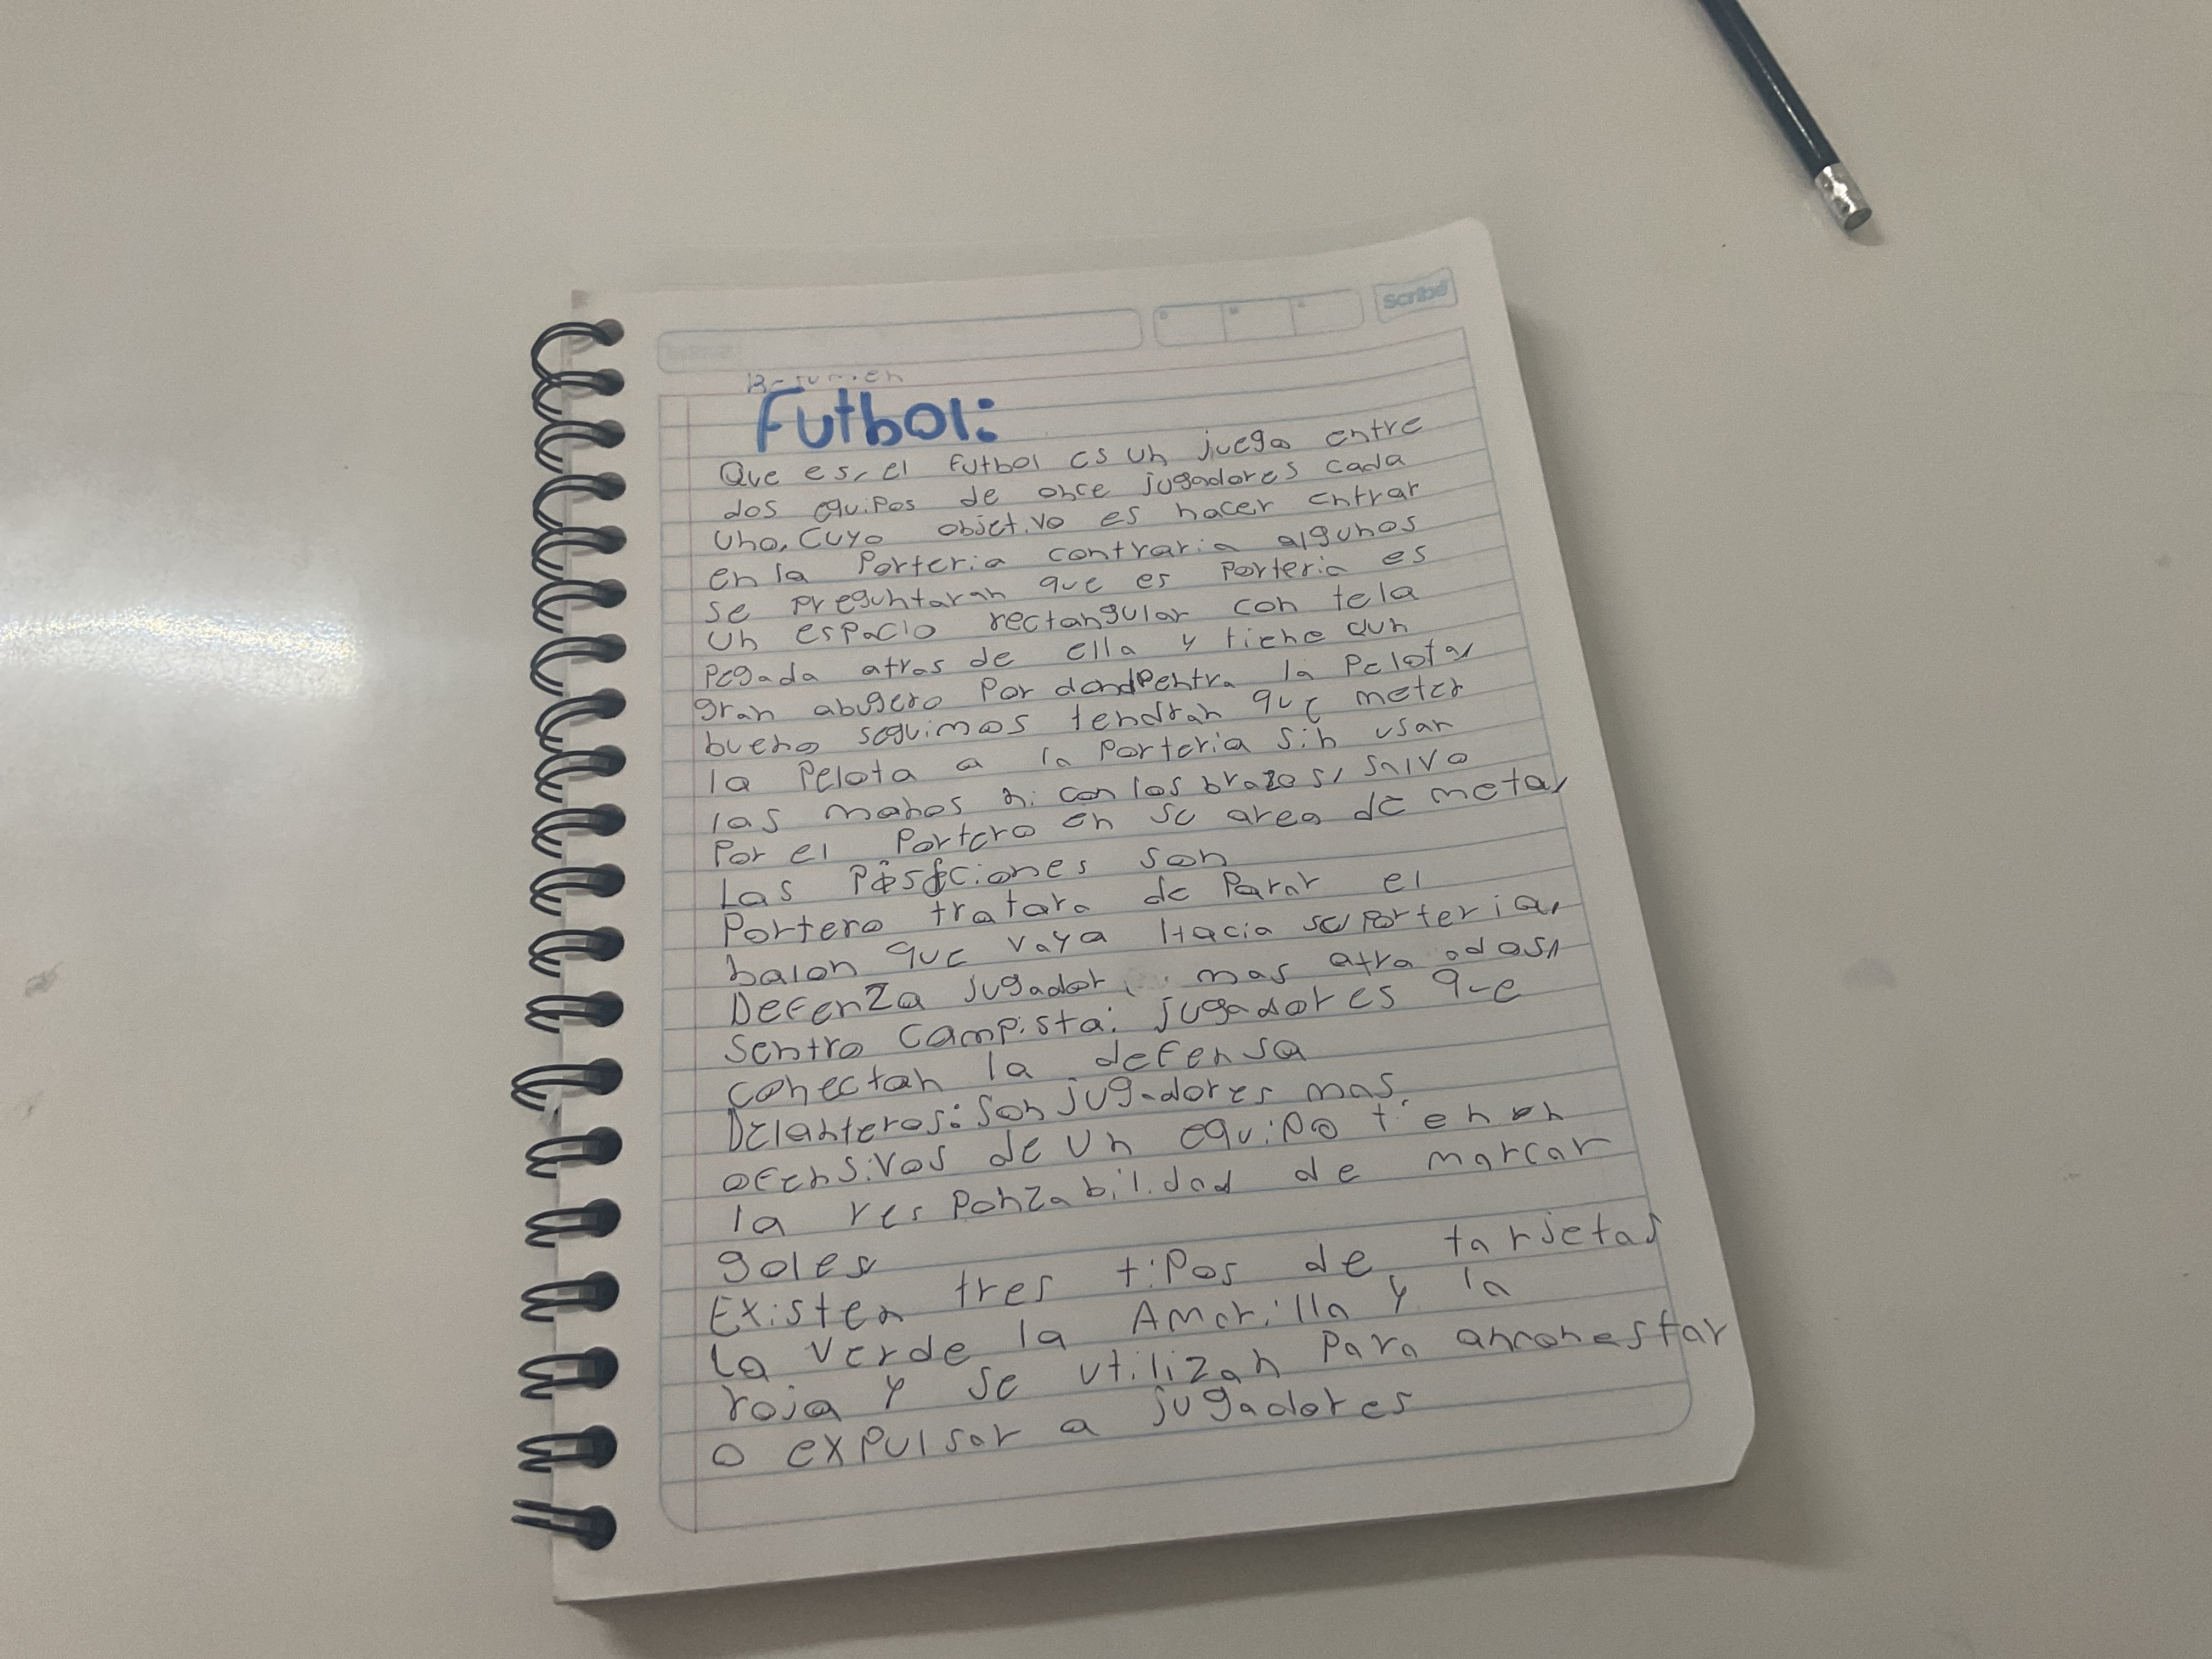 scribe
Resumen
Futbol:
Que es, el futbol es un juego entre
dos equipos de once jugadores cada
uno. Cuyo objetivo es hacer entrar
en la Porteria contraria algunos
se preguntaran que es Porteria es
un espacio rectangular con tela
Pegada atras de ella y tiene aun
gran abugero Por dondPentra la Pelota,
bueno seguimos tendran que meter
la Pelota a la Porteria sin usar
las manos ni con los brazos, salvo
Por el Portero en su area de meta,
Las Posiciones son
Portero tratara de Parar el
balon que vaya Hacia su Porteria,
Defenza jugador mas atra
Sentro campista: jugadores que
conectan la defensa
Delanteros: Son jugadores mas
ofensivos de un equipo tienen
la responzabilidad de marcar
goles
Existen tres tipos de tarjetas
La verde la Amarilla y la
roja y se utilizan Para anconestar
o expulsar a jugadores